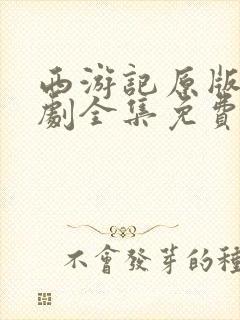 西游記原版
劇全集免費
不會發芽的種